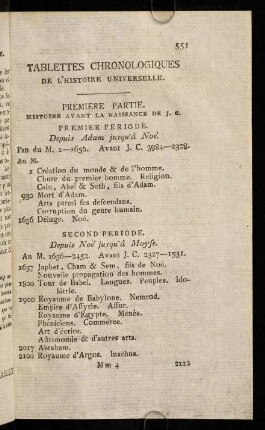 551
TABLETTES CHRONOLOGIQUES
DE L'HISTOIRE UNIVERSELLE.
PREMIERE PARTIE.
HISTOIRE AVANT LA NAISSANCE DE J. C.
PREMIER PERIODE.
Depuis Adam jusqu'à Noé.
l'an du M. 1—1656. Avant J. C. 3984—2328.
An M.
1 Création du monde & de l'homme.
Chute du premier homme. Religion.
Cain, Abel & Seth, fils d'Adam.
930 Mort d'Adam.
Arts parmi ses descendans.
Corruption du genre humain.
1656 Déluge. Noé.
SECOND PERIODE.
Depuis Noé jusqu'à Moyse.
An M. 1656—2452. Avant J. C. 2327—1531.
1657 Japhet, Cham & Sem, fils de Noé.
Nouvelle propagation des hommes.
1800 Tour de Babel. Langues. Peuples. Ido-
lâtrie.
1900 Royaume de Babylone. Nemrod.
Empire d'Assyrie. Assur.
Royaume d'Egypte. Ménès.
Phéniciens. Commerce.
Art d'écrire.
Astronomie & d'autres arts.
2017 Abraham.
2100 Royaume d'Argos. Inachus.
Mm 4 2122